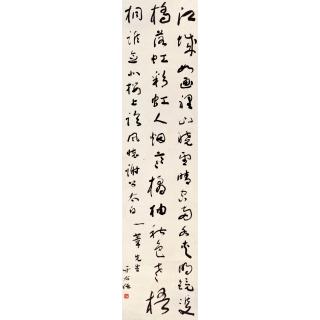 江城如画里山晓望晴空雨水夹明镜双
桥落虹彩虹人烟寒橘柚秋色老梧
桐谁念北楼上临风怀谢公太白
一苇先生
于右任